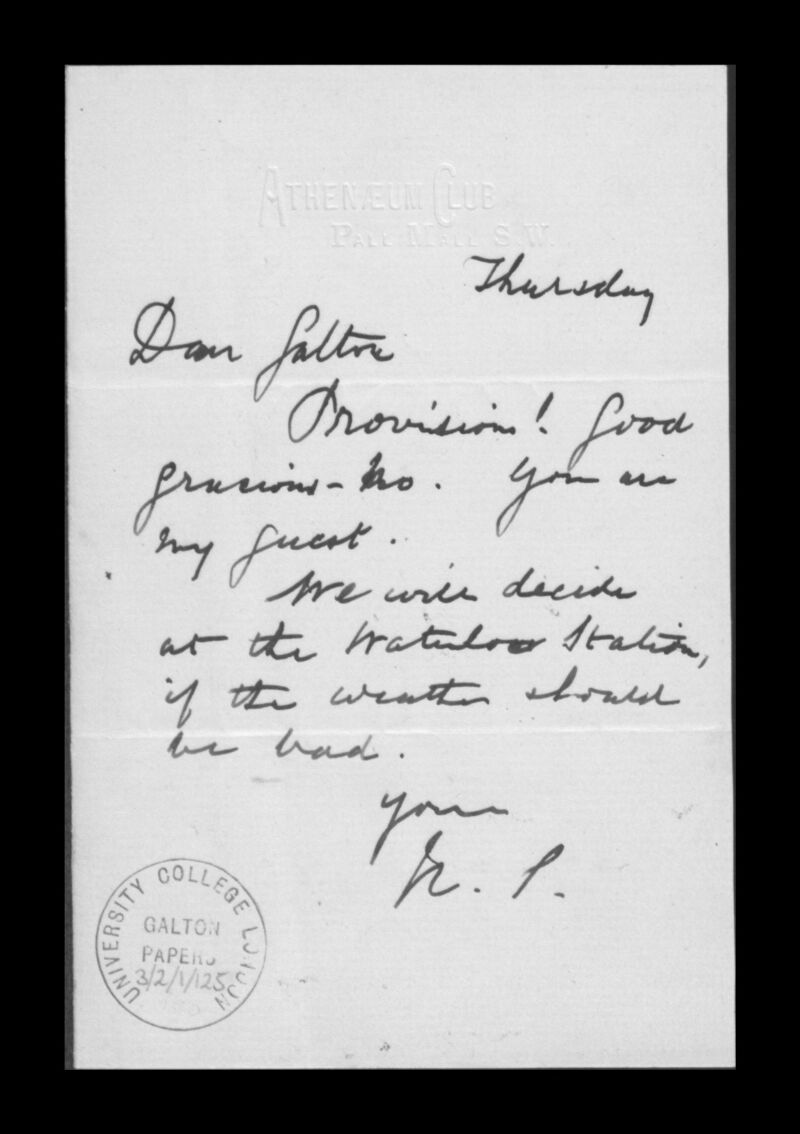 ATHENÆUM CLUB
PALL MALL S.W.
Thursday
Dear Galton
Provisions! Good
gracious - No. You are
my guest.
We will decide
at the Waterloo Station,
if the weather should
be bad.
Yours
S.
UNIVERSITY COLLEGE LONDON
GALTON
PAPERS
3/2/1/125